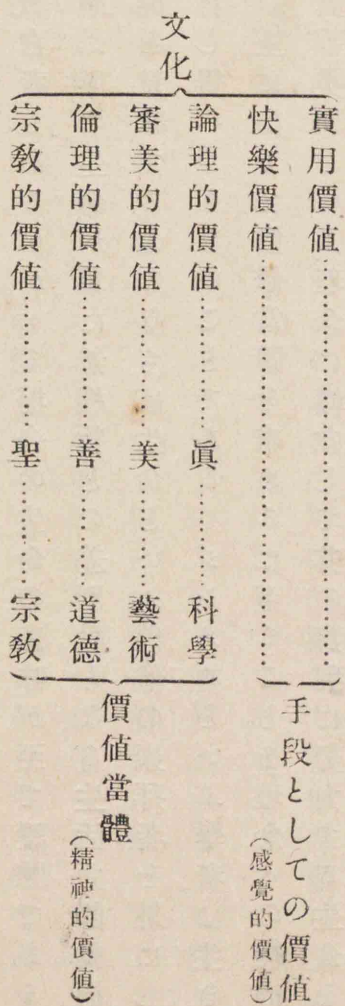 文化
實用價値
快樂價値
手段としての價値
(感覺的價値)
論理的價値 眞 科學
審美的價値 美 藝術
倫理的價値 善 道德
宗敎的價値 聖 宗敎
價値當體
(精神的價値)